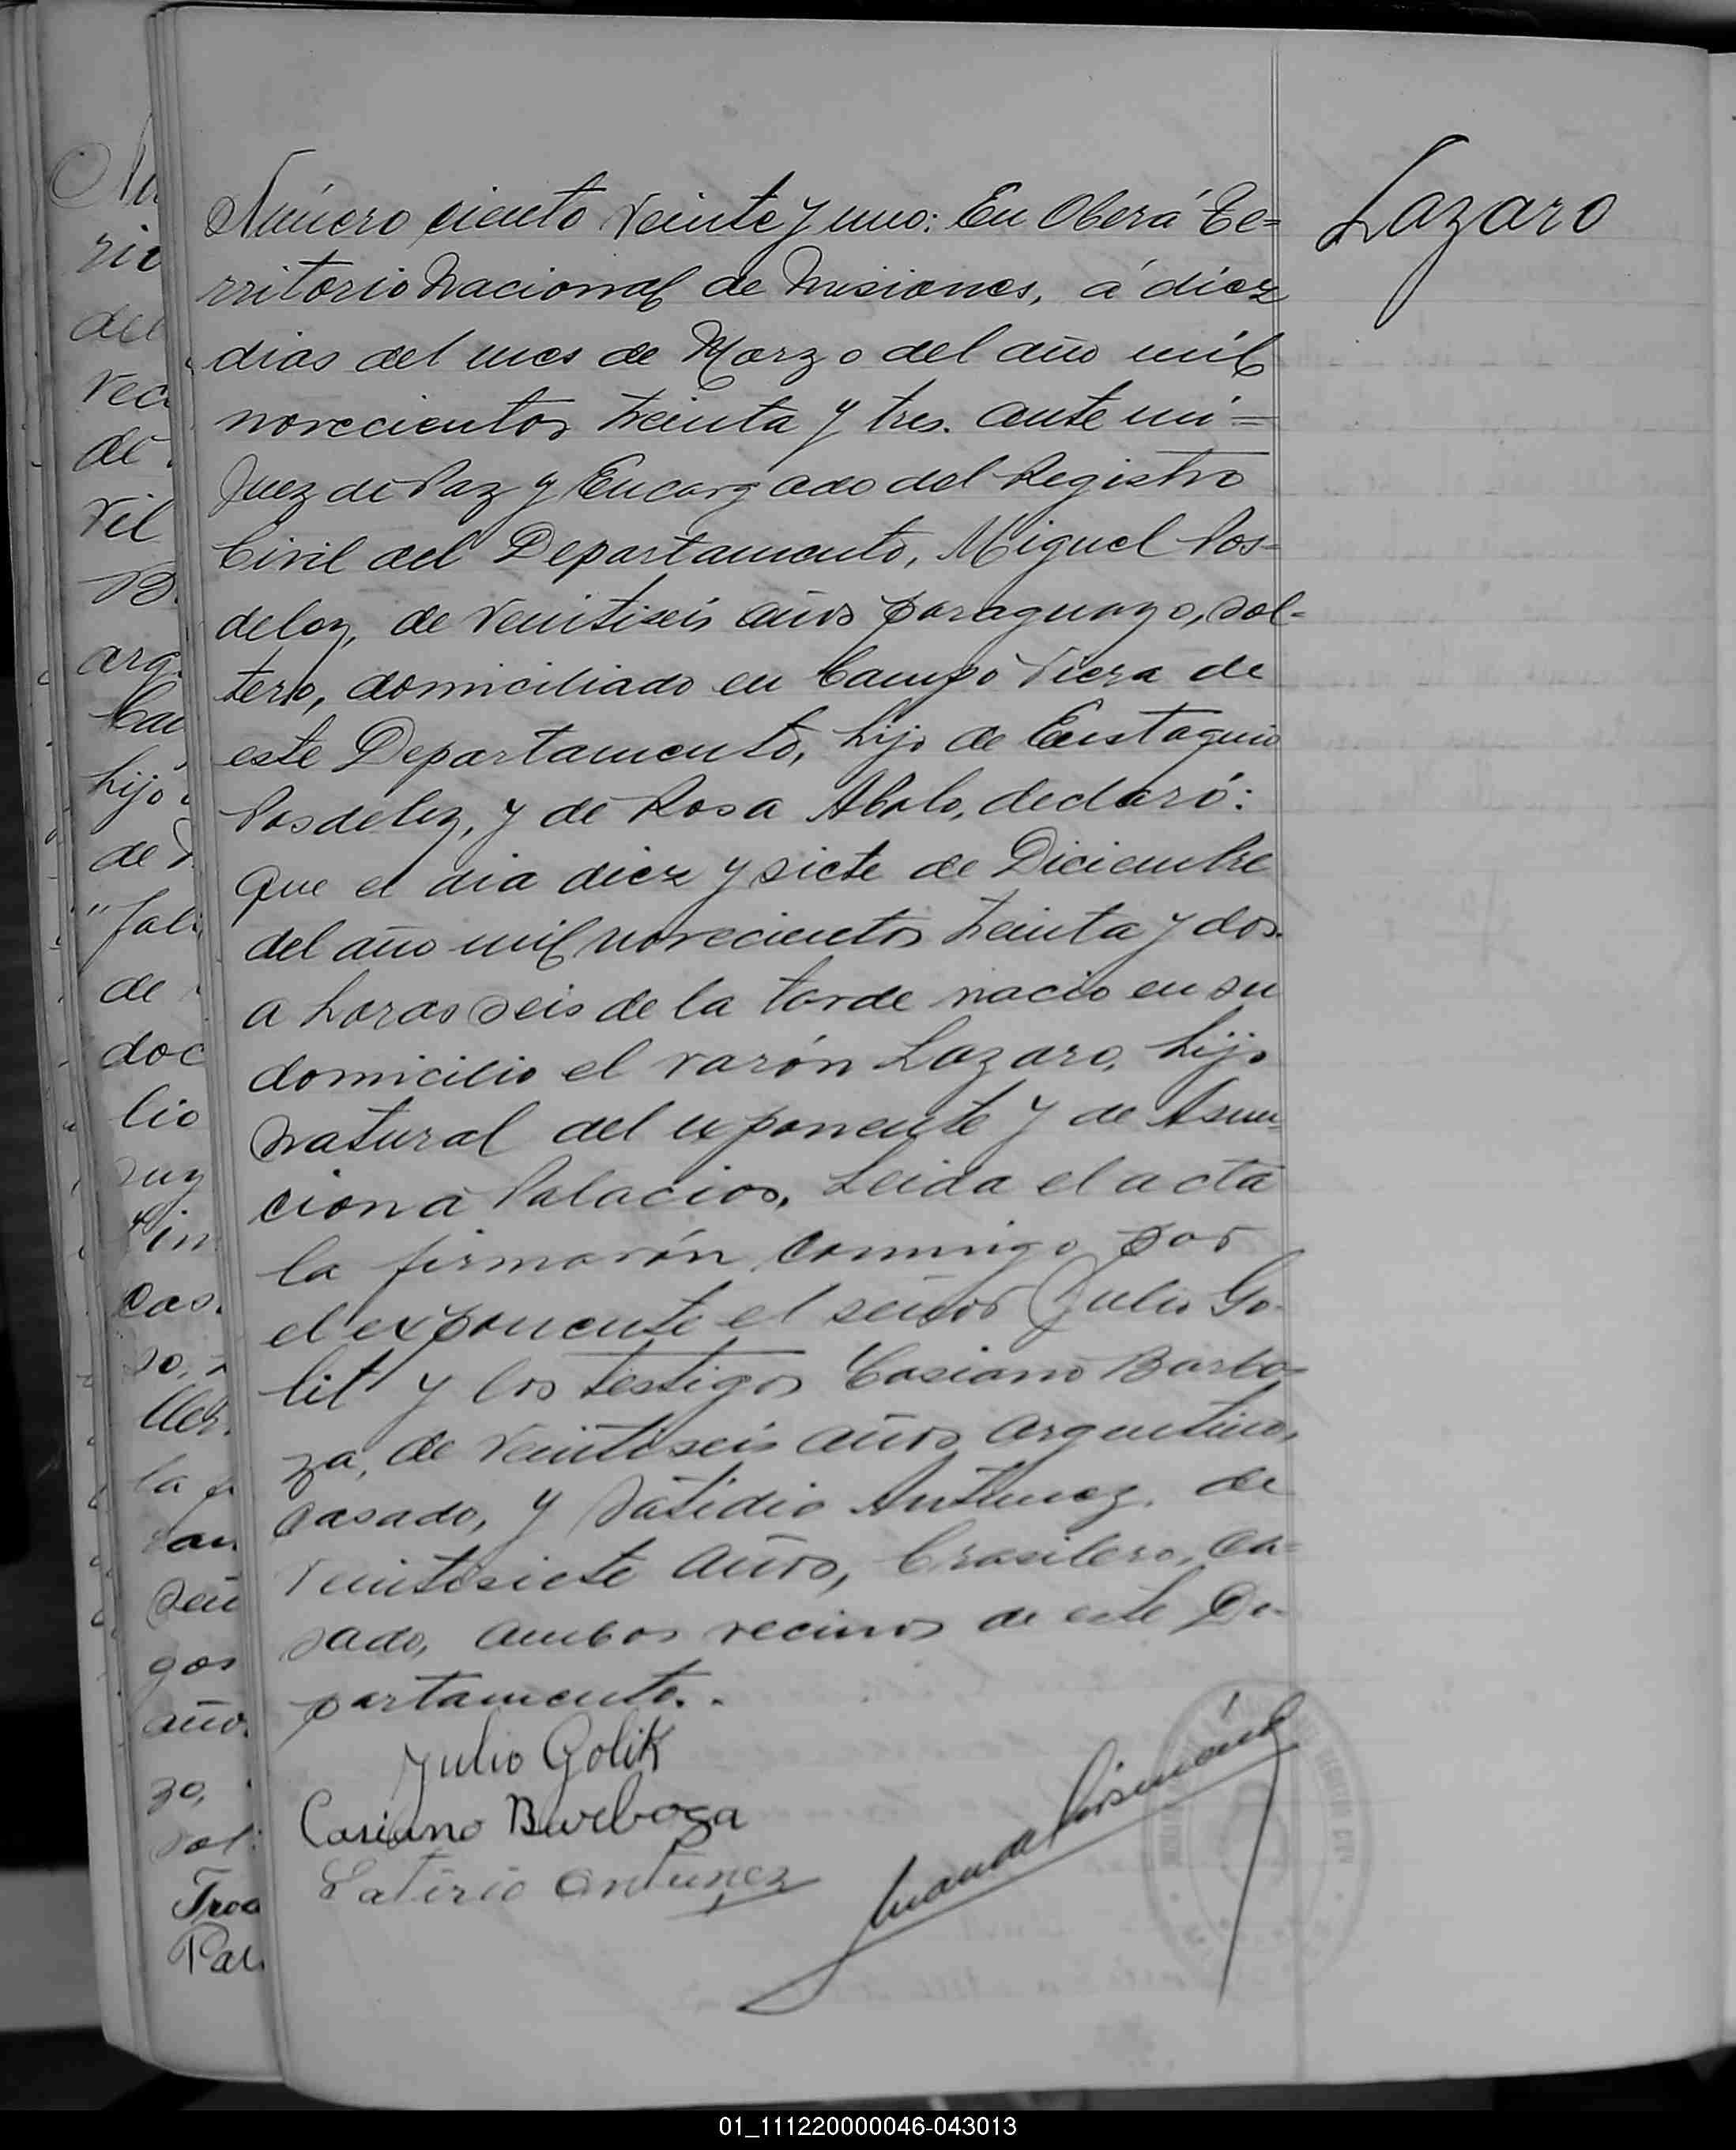 Lazaro
Número ciento veinte y uno: En Oberá Te=
rritorio Nacional de Misiones, á diez
dias del mes de Marzo del año mil
novecientos treinta y tres. ante mi=
Juez de Paz y Encargado del Registro
Civil del Departamento, Miguel Pos=
deley, de veintiseis años paraguayo, sol=
tero, domiciliado en Campo Viera de
este Departamento, hijo de Eustaquio
Posdeley, y de Rosa Abalo, declaró:
Que el dia diez y siete de Diciembre
del año mil novecientos treinta y dos.
a horas seis de la tarde nacio en su
domicilio el varón Lazaro, hijo
natural del exponente y de Asun=
ciona Palacios. Leida el acta
la firmarón conmigo por
el exponente el señor Julio Go-
lit y los testigos Casiano Barbo=
za, de veintiseis años argentino,
casado, y Satidio Antunez, de
veintisiete años, brasilero, ca=
sado, ambos vecinos de este De-
partamento..
Julio Golik
Casiano Barboza
Satirio Antunez